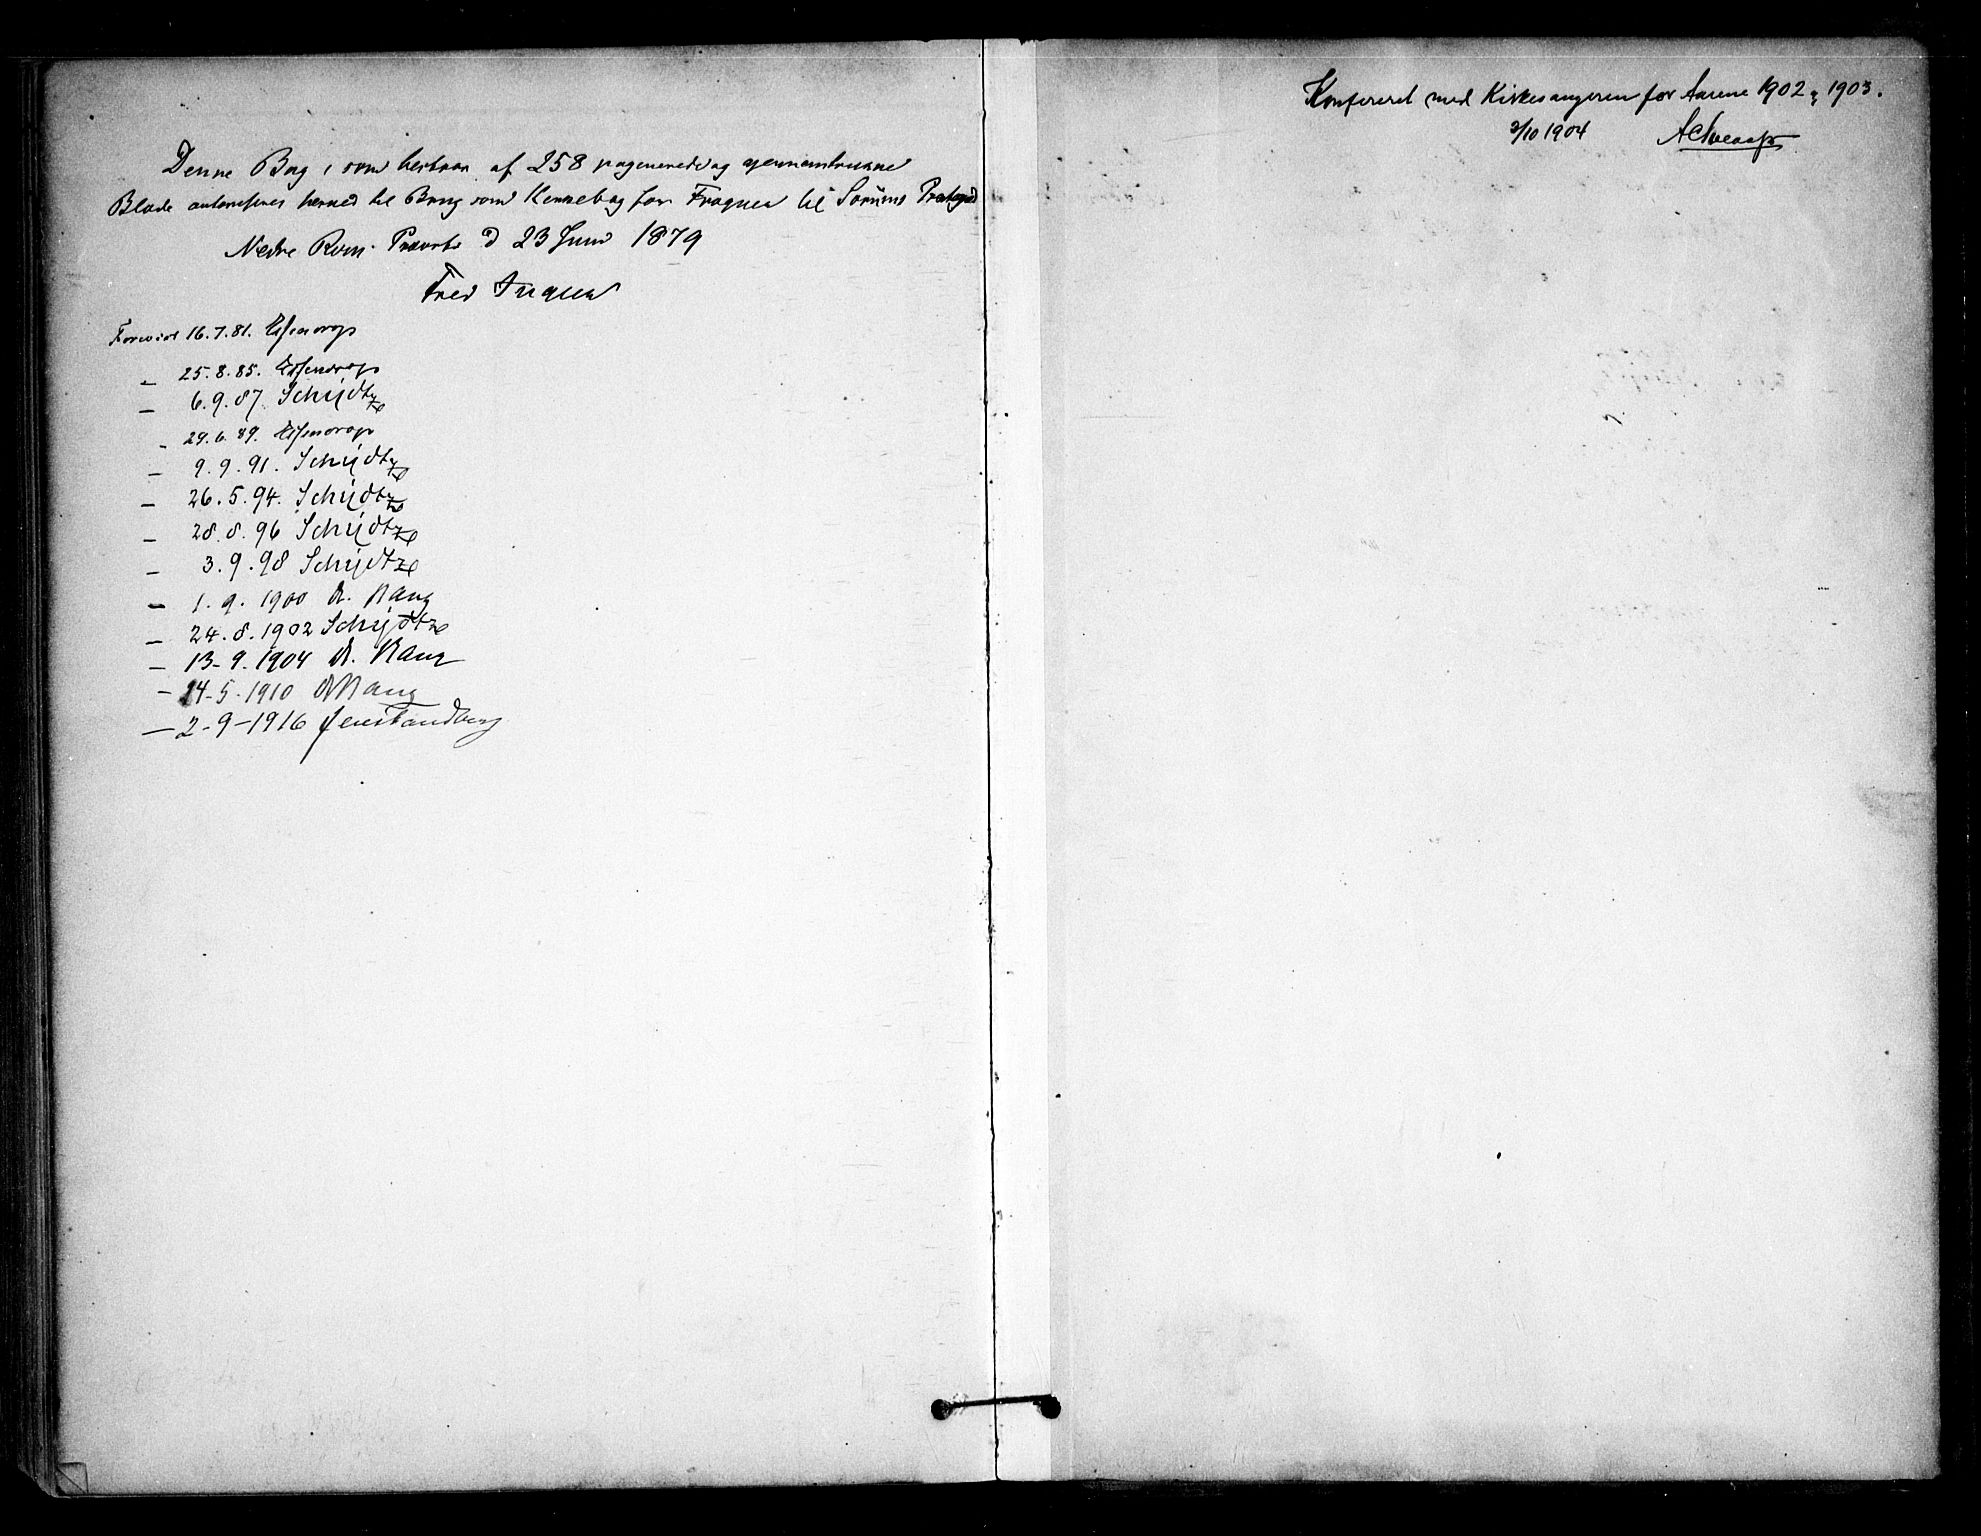 Denne Bog, som bestaar af 258 paginerede og gjennemtrukne
Blade autoriseres herved til Brug som Kirkebog for Frogner til Sørums Præstegjd
Nedre Rom. Provsti d 23 Juni 1879
Fred
Forevist 16.7.81. Essendrop
— 25.8.85. Essendrop
— 6.9.87. Schijøtz
— 29.6.89. Essendrop
— 9.9.91. Schijøtz
— 26.5.94. Schijøtz
— 28.8.96 Schijøtz
— 3.9.98 Schijøtz
— 1.9.1900 A. Bang
— 24.8.1902 Schijøtz
— 13-9.1904 A. Bang
— 24-5.1910 A Bang
— 2-9-1916 Jens Tandberg
Konfereret med Kirkesangeren for Aarene 1902 og 1903.
3/10 1904